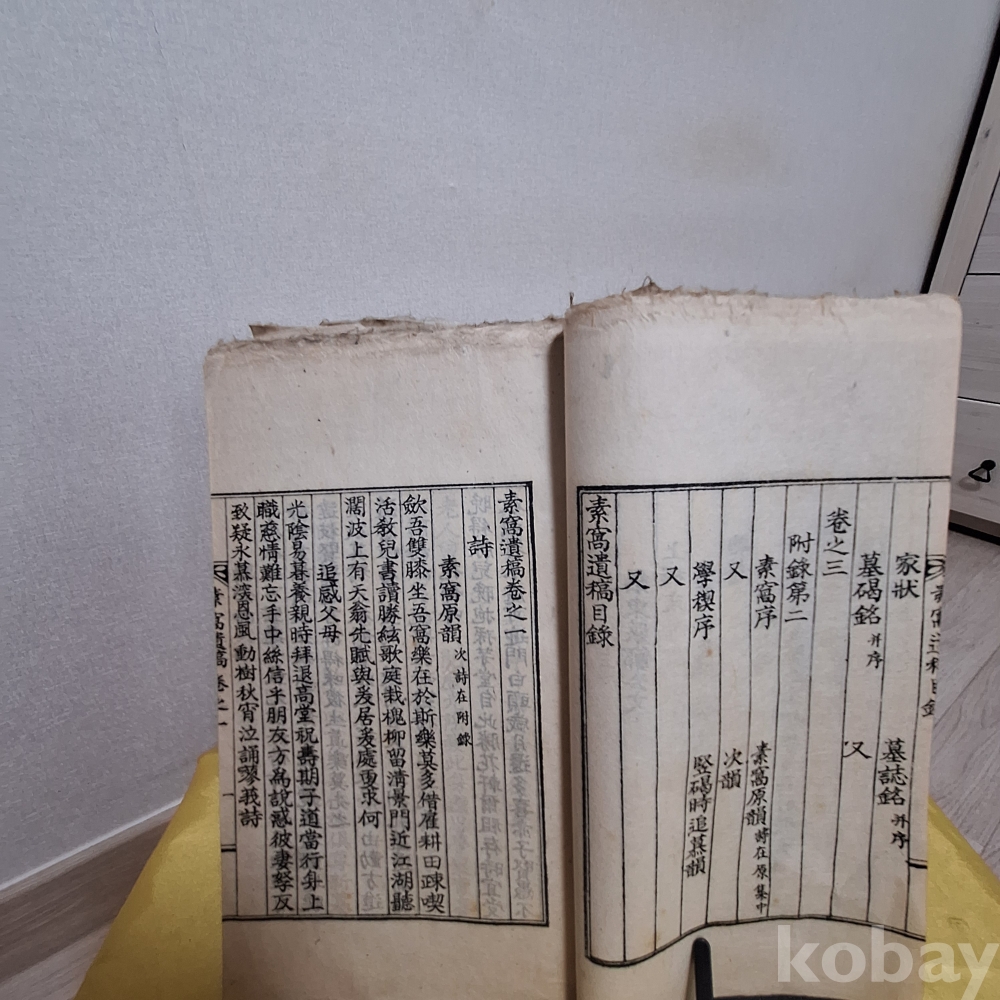 素窩遺稿目錄
家狀 墓誌銘 并序
墓碣銘 并序 又
卷之三
附錄第二
素窩序 素窩原韻 詩在原集中
又 次韻
學稧序 竪碣時追慕韻
又
又
素窩遺稿目錄
素窩遺稿卷之一
詩
素窩原韻 次詩在附錄
歛吾雙膝坐吾窩樂在於斯樂莫多借雇耕田疎喫
活敎兒書讀勝絃歌庭栽槐柳留淸景門近江湖聽
濶波上有天翁先賦與爰居爰處更求何
追感父母
光陰易暮養親時拜退高堂祝壽期子道當行身上
職慈情難忘手中絲信乎朋友方爲說惑彼妻孥反
致疑永慕深恩風動樹秋宵泣誦蓼莪詩
素窩遺稿卷之一 一
kobay